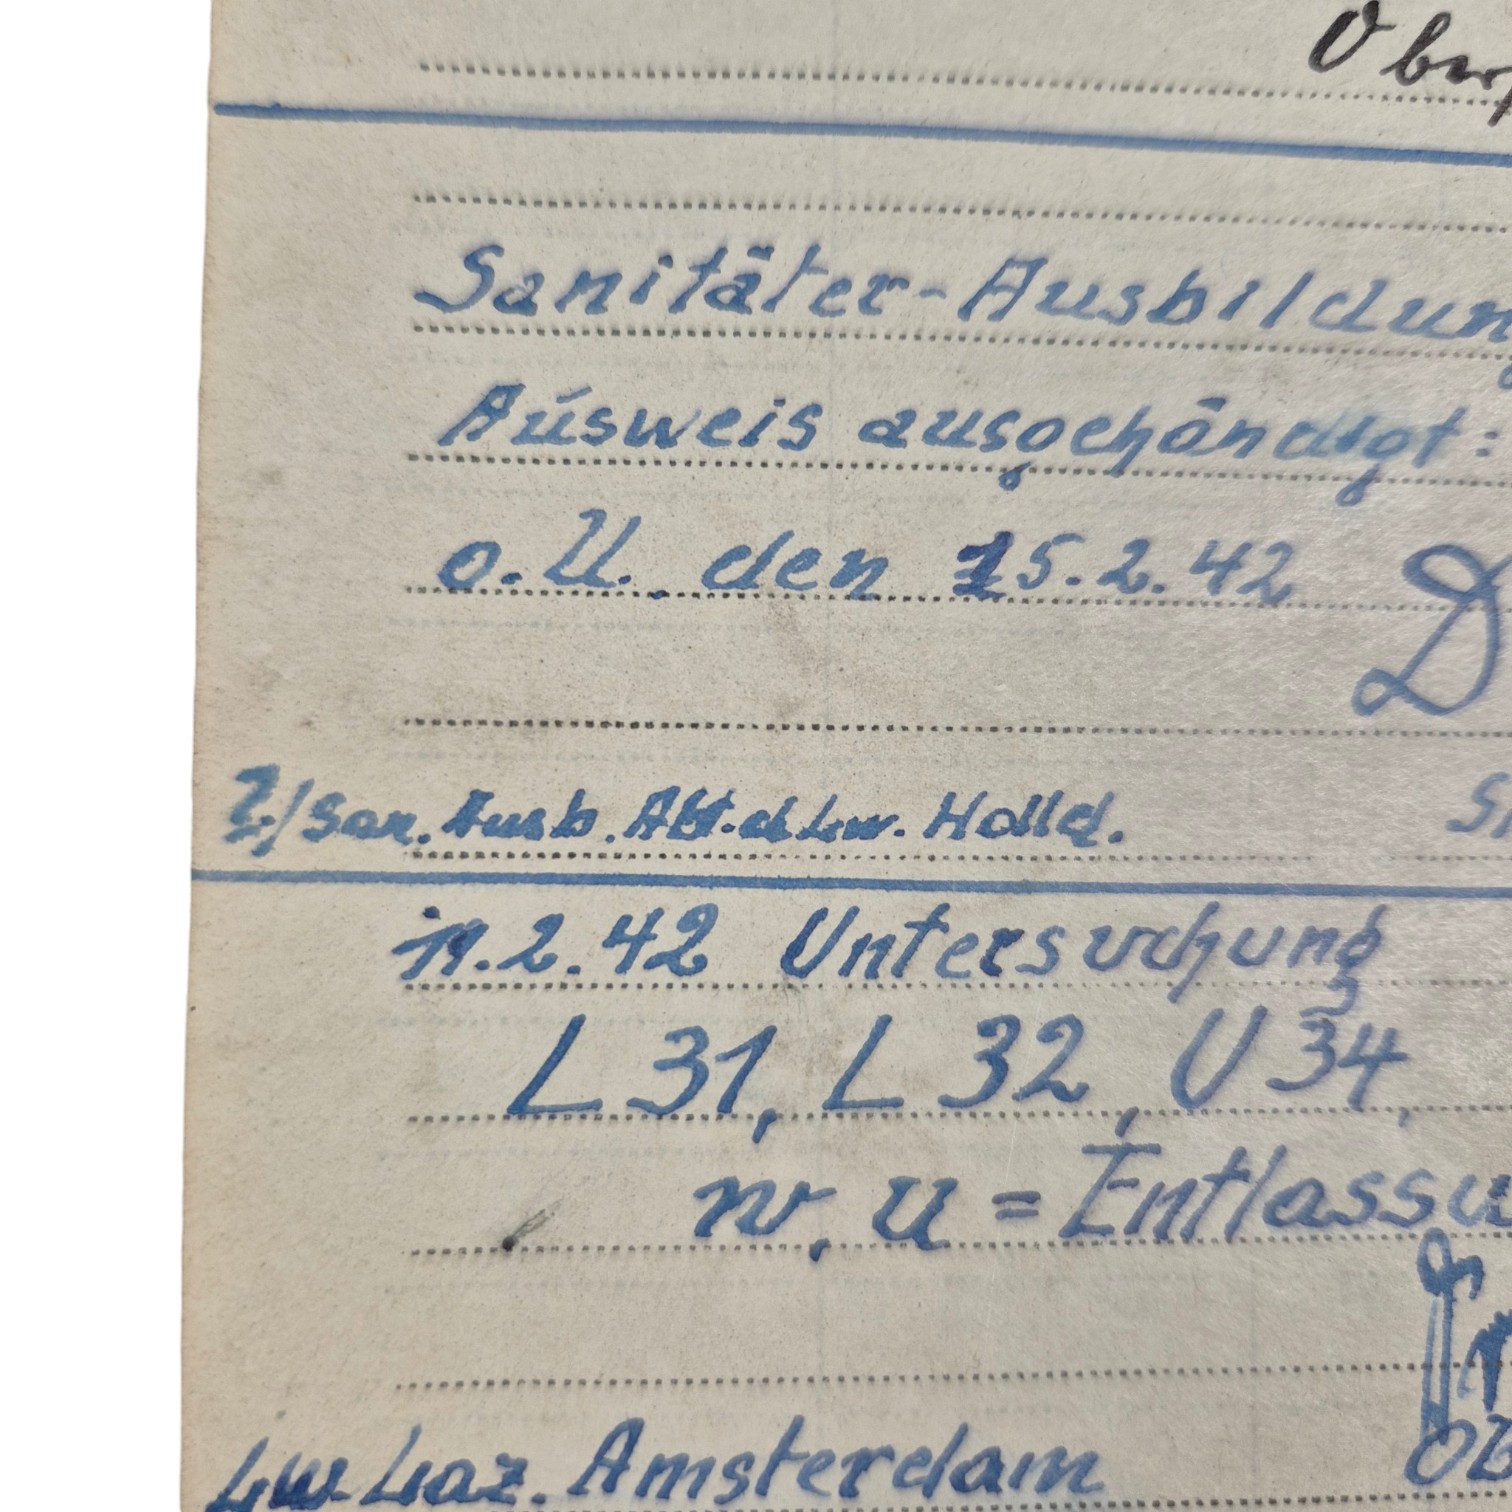 Ober
Sanitäter-Ausbildung
Ausweis ausgehändigt:
o.U., den 15.2.42
D
2./San. Ausb. Abt. d Lw. Holld.
19.2.42 Untersuchung
L 31, L 32, U 34,
w, u = Entlassu
Lw. Laz. Amsterdam